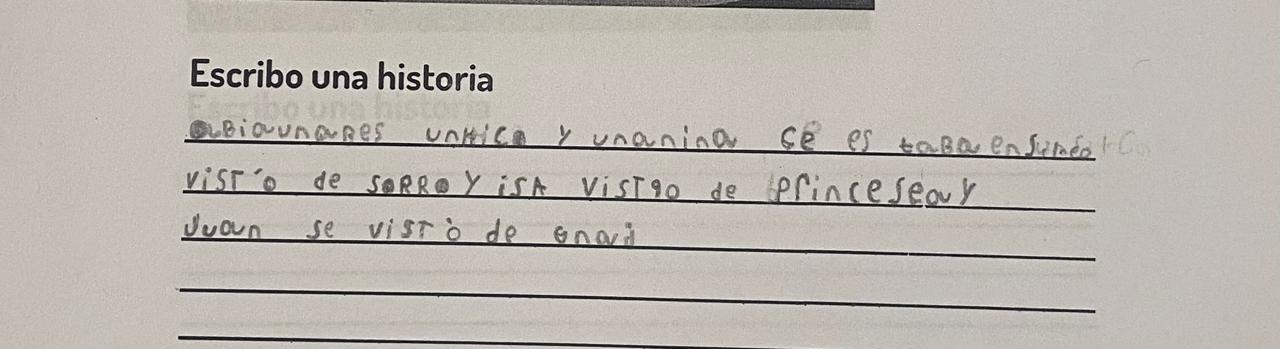 Escribo una historia
aBiaunaRes unHico y unanina se es taBa en
vist´o de soRRo y isA visTio de princeseay
Juan se vistò de